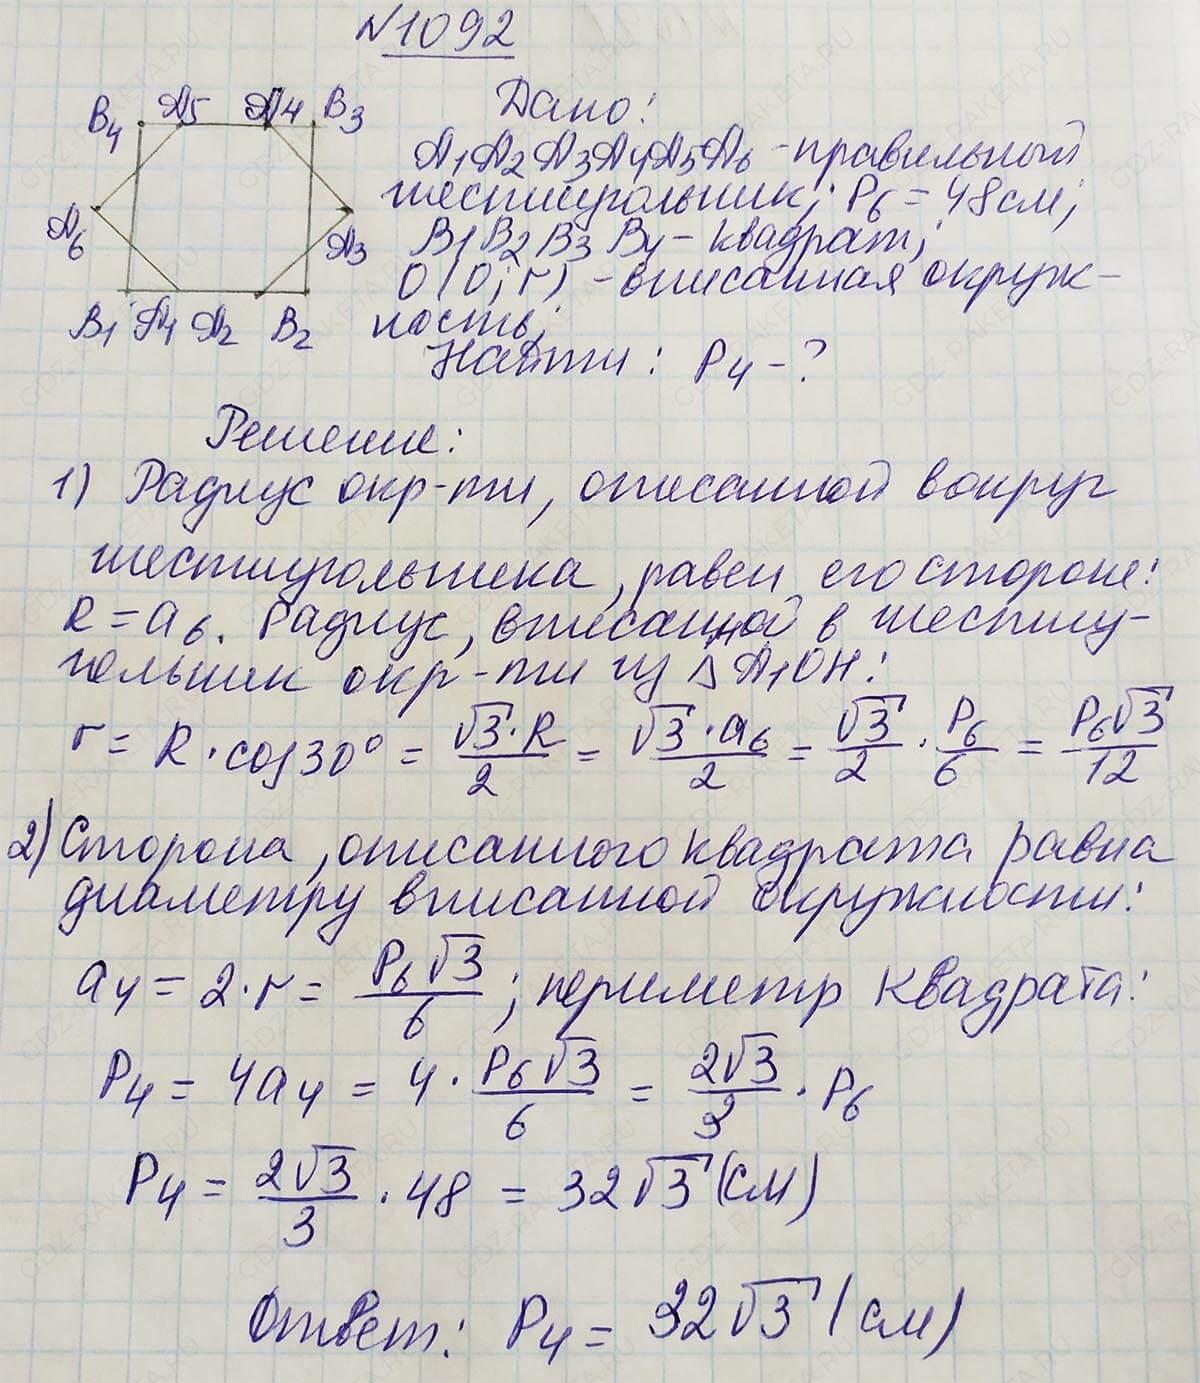 №1092
B4 A5 A4 B3
A6 A3
B1 A1 A2 B2
Дано:
A1A2A3A4A5A6 - правильный
шестиугольник; P6 = 48см;
B1B2B3B4 - квадрат;
O(O;r) - вписанная окруж-
ность;
Найти: P4 - ?
Решение:
1) Радиус окр-ти, описанной вокруг
шестиугольника, равен его стороне:
R = a6. Радиус, вписанной в шестиу-
гольник окр-ти из △A1OH:
r = R·cos30° = √3·R/2 = √3·a6/2 = √3/2 · P6/6 = P6√3/12
2) Сторона, описанного квадрата равна
диаметру вписанной окружности:
a4 = 2·r = P6√3/6; периметр квадрата:
P4 = 4a4 = 4 · P6√3/6 = 2√3/3 · P6
P4 = 2√3/3 · 48 = 32√3 (см)
Ответ: P4 = 32√3 (см)